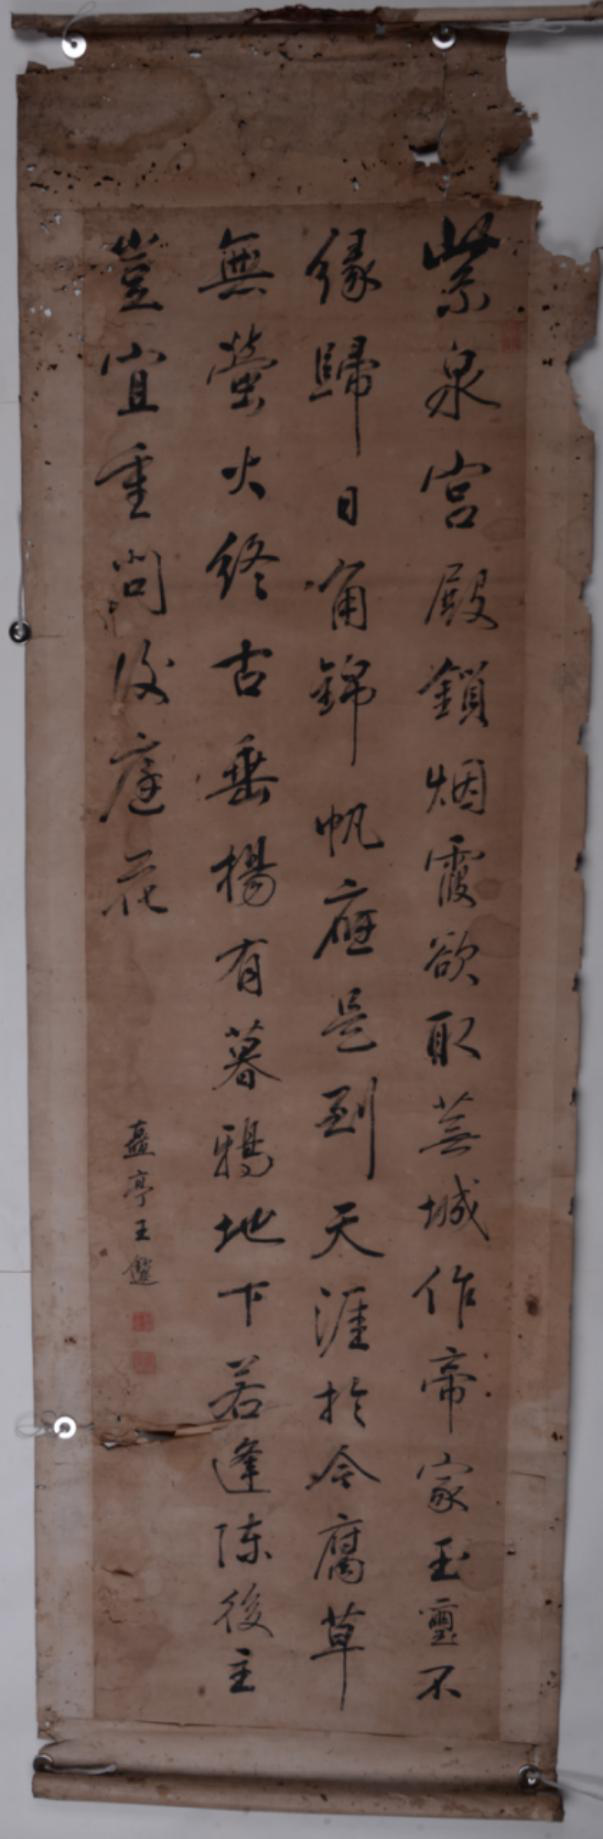 紫泉宮殿鎖烟霞欲取蕪城作帝家玉璽不
緣歸日角錦帆應是到天涯於今腐草
無螢火終古垂楊有暮鴉地下若逢陳後主
豈宜重問後庭花
盍亭王鑑